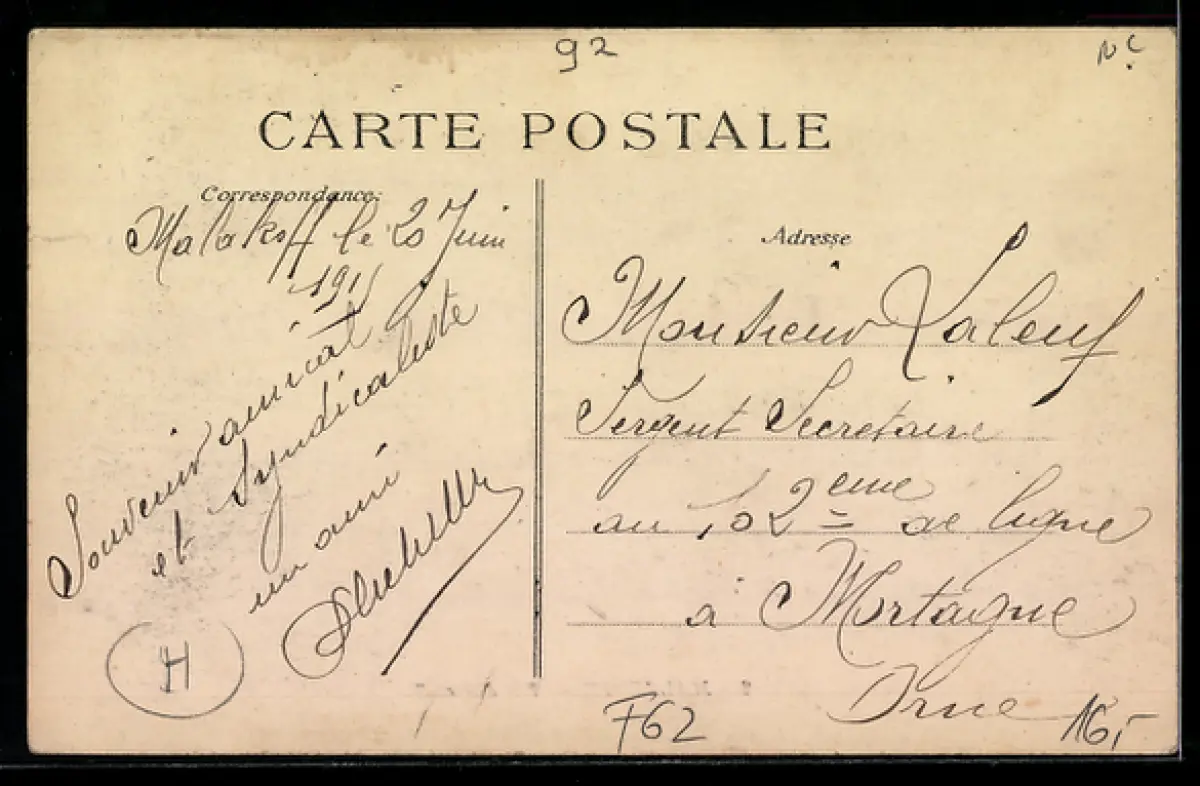 92
CARTE POSTALE
Correspondance:
Malakoff le 20 Juin
1911
Souvenir amical
et Syndicaliste
un ami
Adresse
Monsieur Laleuf
Sergent Secretaire
au 102eme de ligne
à Mortagne
Orne
H
F62
16,-